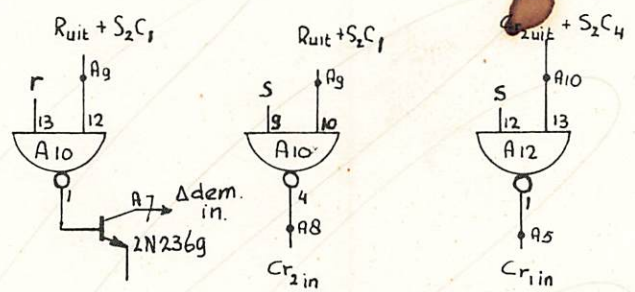 Ruit + S2C1
A9
r
13
12
A10
1
A7
Δdem.
in.
2N2369
Ruit + S2C1
A9
s
9
10
A10
4
A8
Cr2in
Cr2uit + S2C4
A10
s
12
13
A12
1
A5
Cr1in